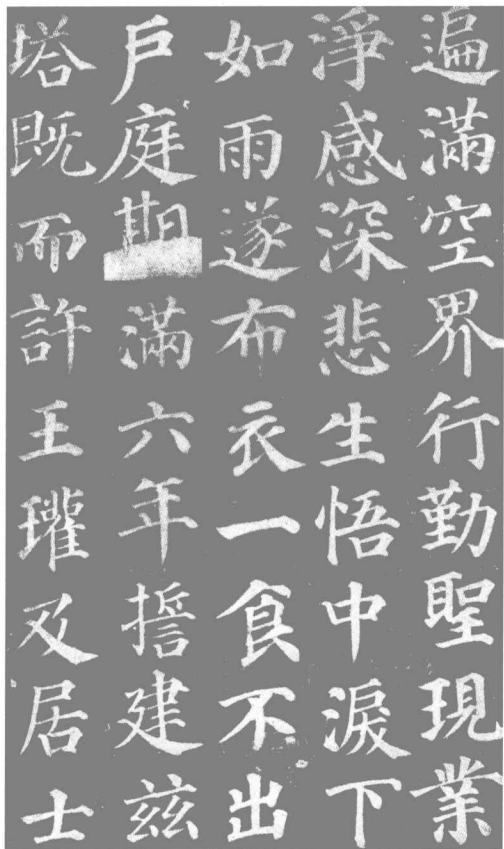 遍滿空界行勤聖現業
淨感深悲生悟中淚下
如雨遂布衣一食不出
戶庭期滿六年誓建茲
塔既而許王瓘及居士